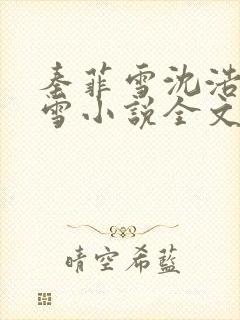 秦菲雪沈浩
雪小説全文
晴空希藍